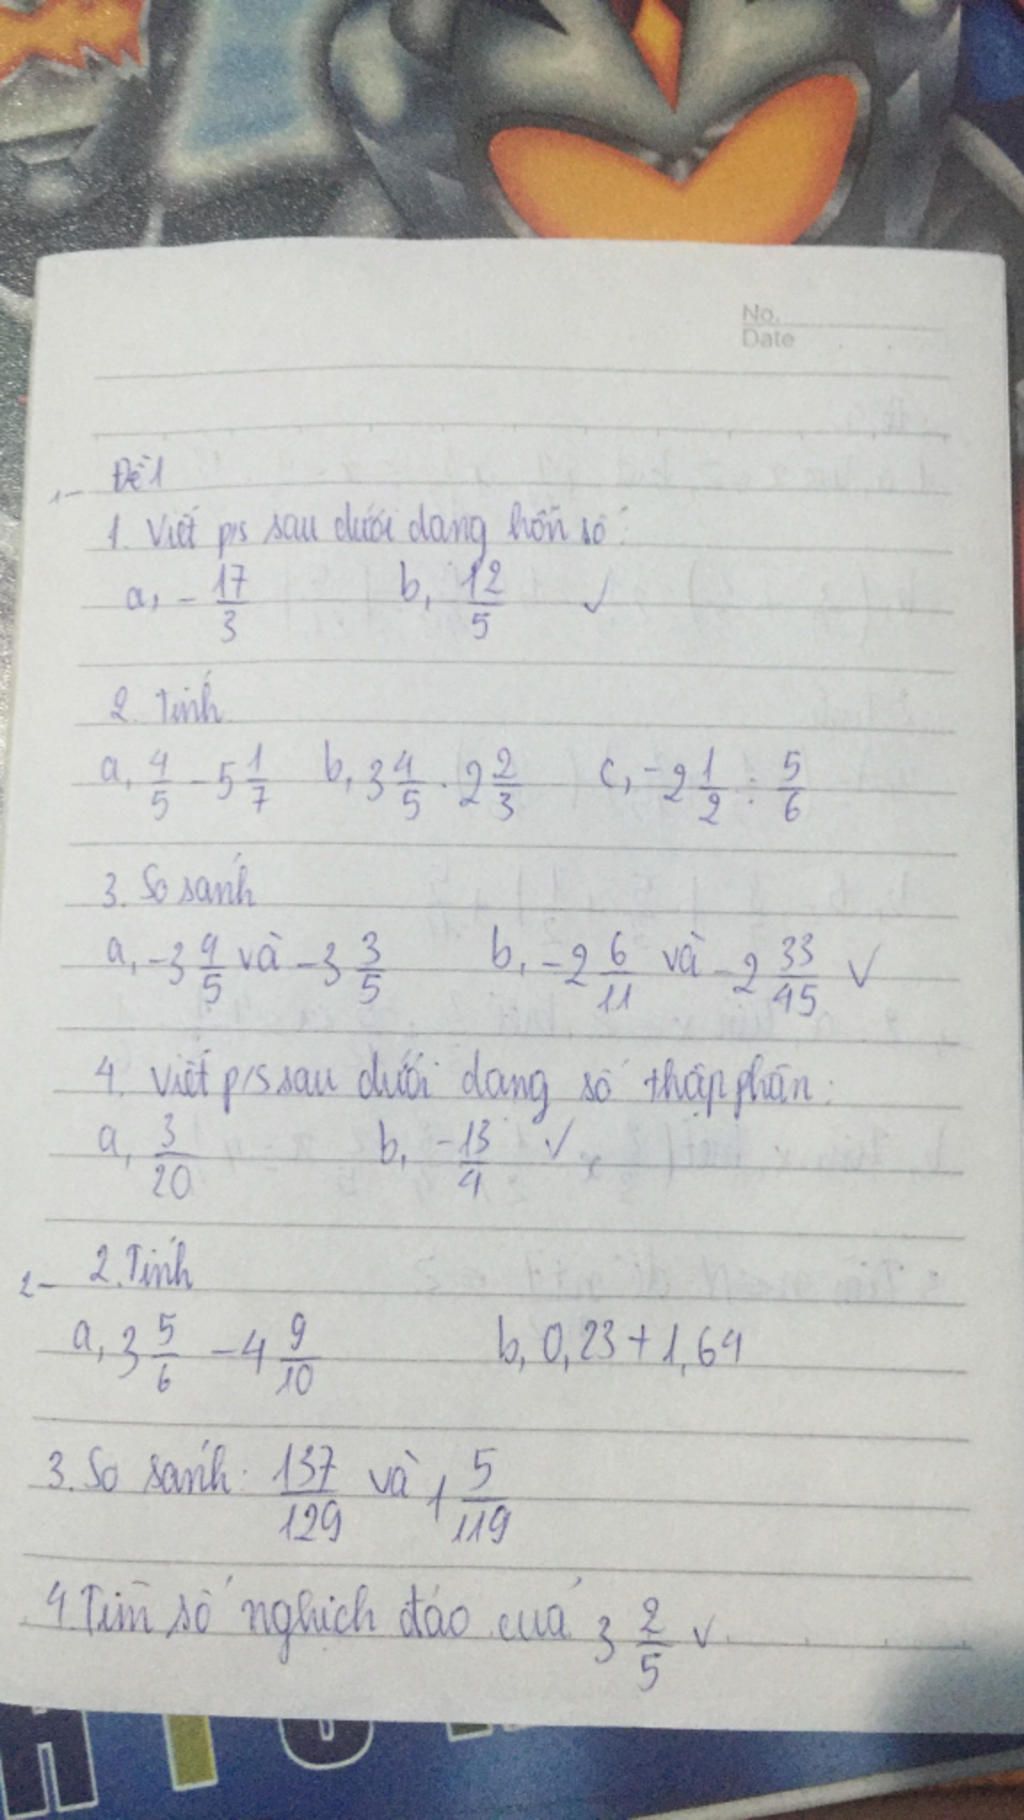 No.
Date
1- Đề 1
1. Viết p/s sau dưới dạng hỗn số:
a, - 17/3 b, 12/5 ✓
2. Tính
a, 4/5 - 5 1/7 b, 3 4/5 . 2 2/3 c, -2 1/2 : 5/6
3. So sánh
a, -3 4/5 và -3 3/5 b, -2 6/11 và -2 33/45 ✓
4. Viết p/s sau dưới dạng số thập phân:
a, 3/20 b, -13/4 ✓
2- 2. Tính
a, 3 5/6 - 4 9/10 b, 0,23 + 1,64
3. So sánh: 137/129 và 1 5/119
4. Tìm số nghịch đảo của 3 2/5 ✓